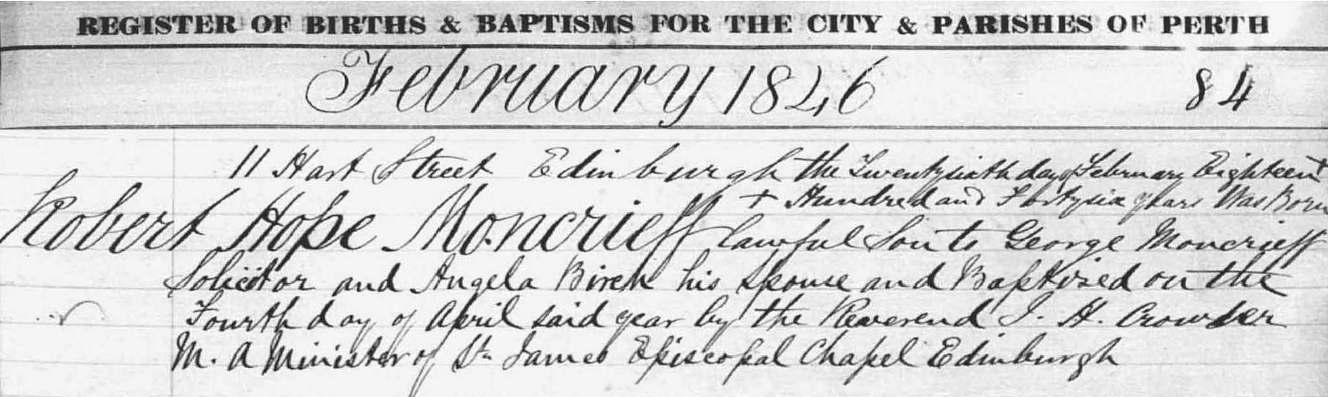 REGISTER OF BIRTHS & BAPTISMS FOR THE CITY & PARISHES OF PERTH
February 1846 84
11 Hart Street Edinburgh the Twentysixth day of February Eighteen +
+ Hundred and Fortysix years Was Born
Robert Hope Moncrieff lawful Son to George Moncrieff
Solicitor and Angela Birch his Spouse and Baptized on the
Fourth day of April said year by the Reverend J. H. Crowder
M. A Minister of St James Episcopal Chapel Edinburgh